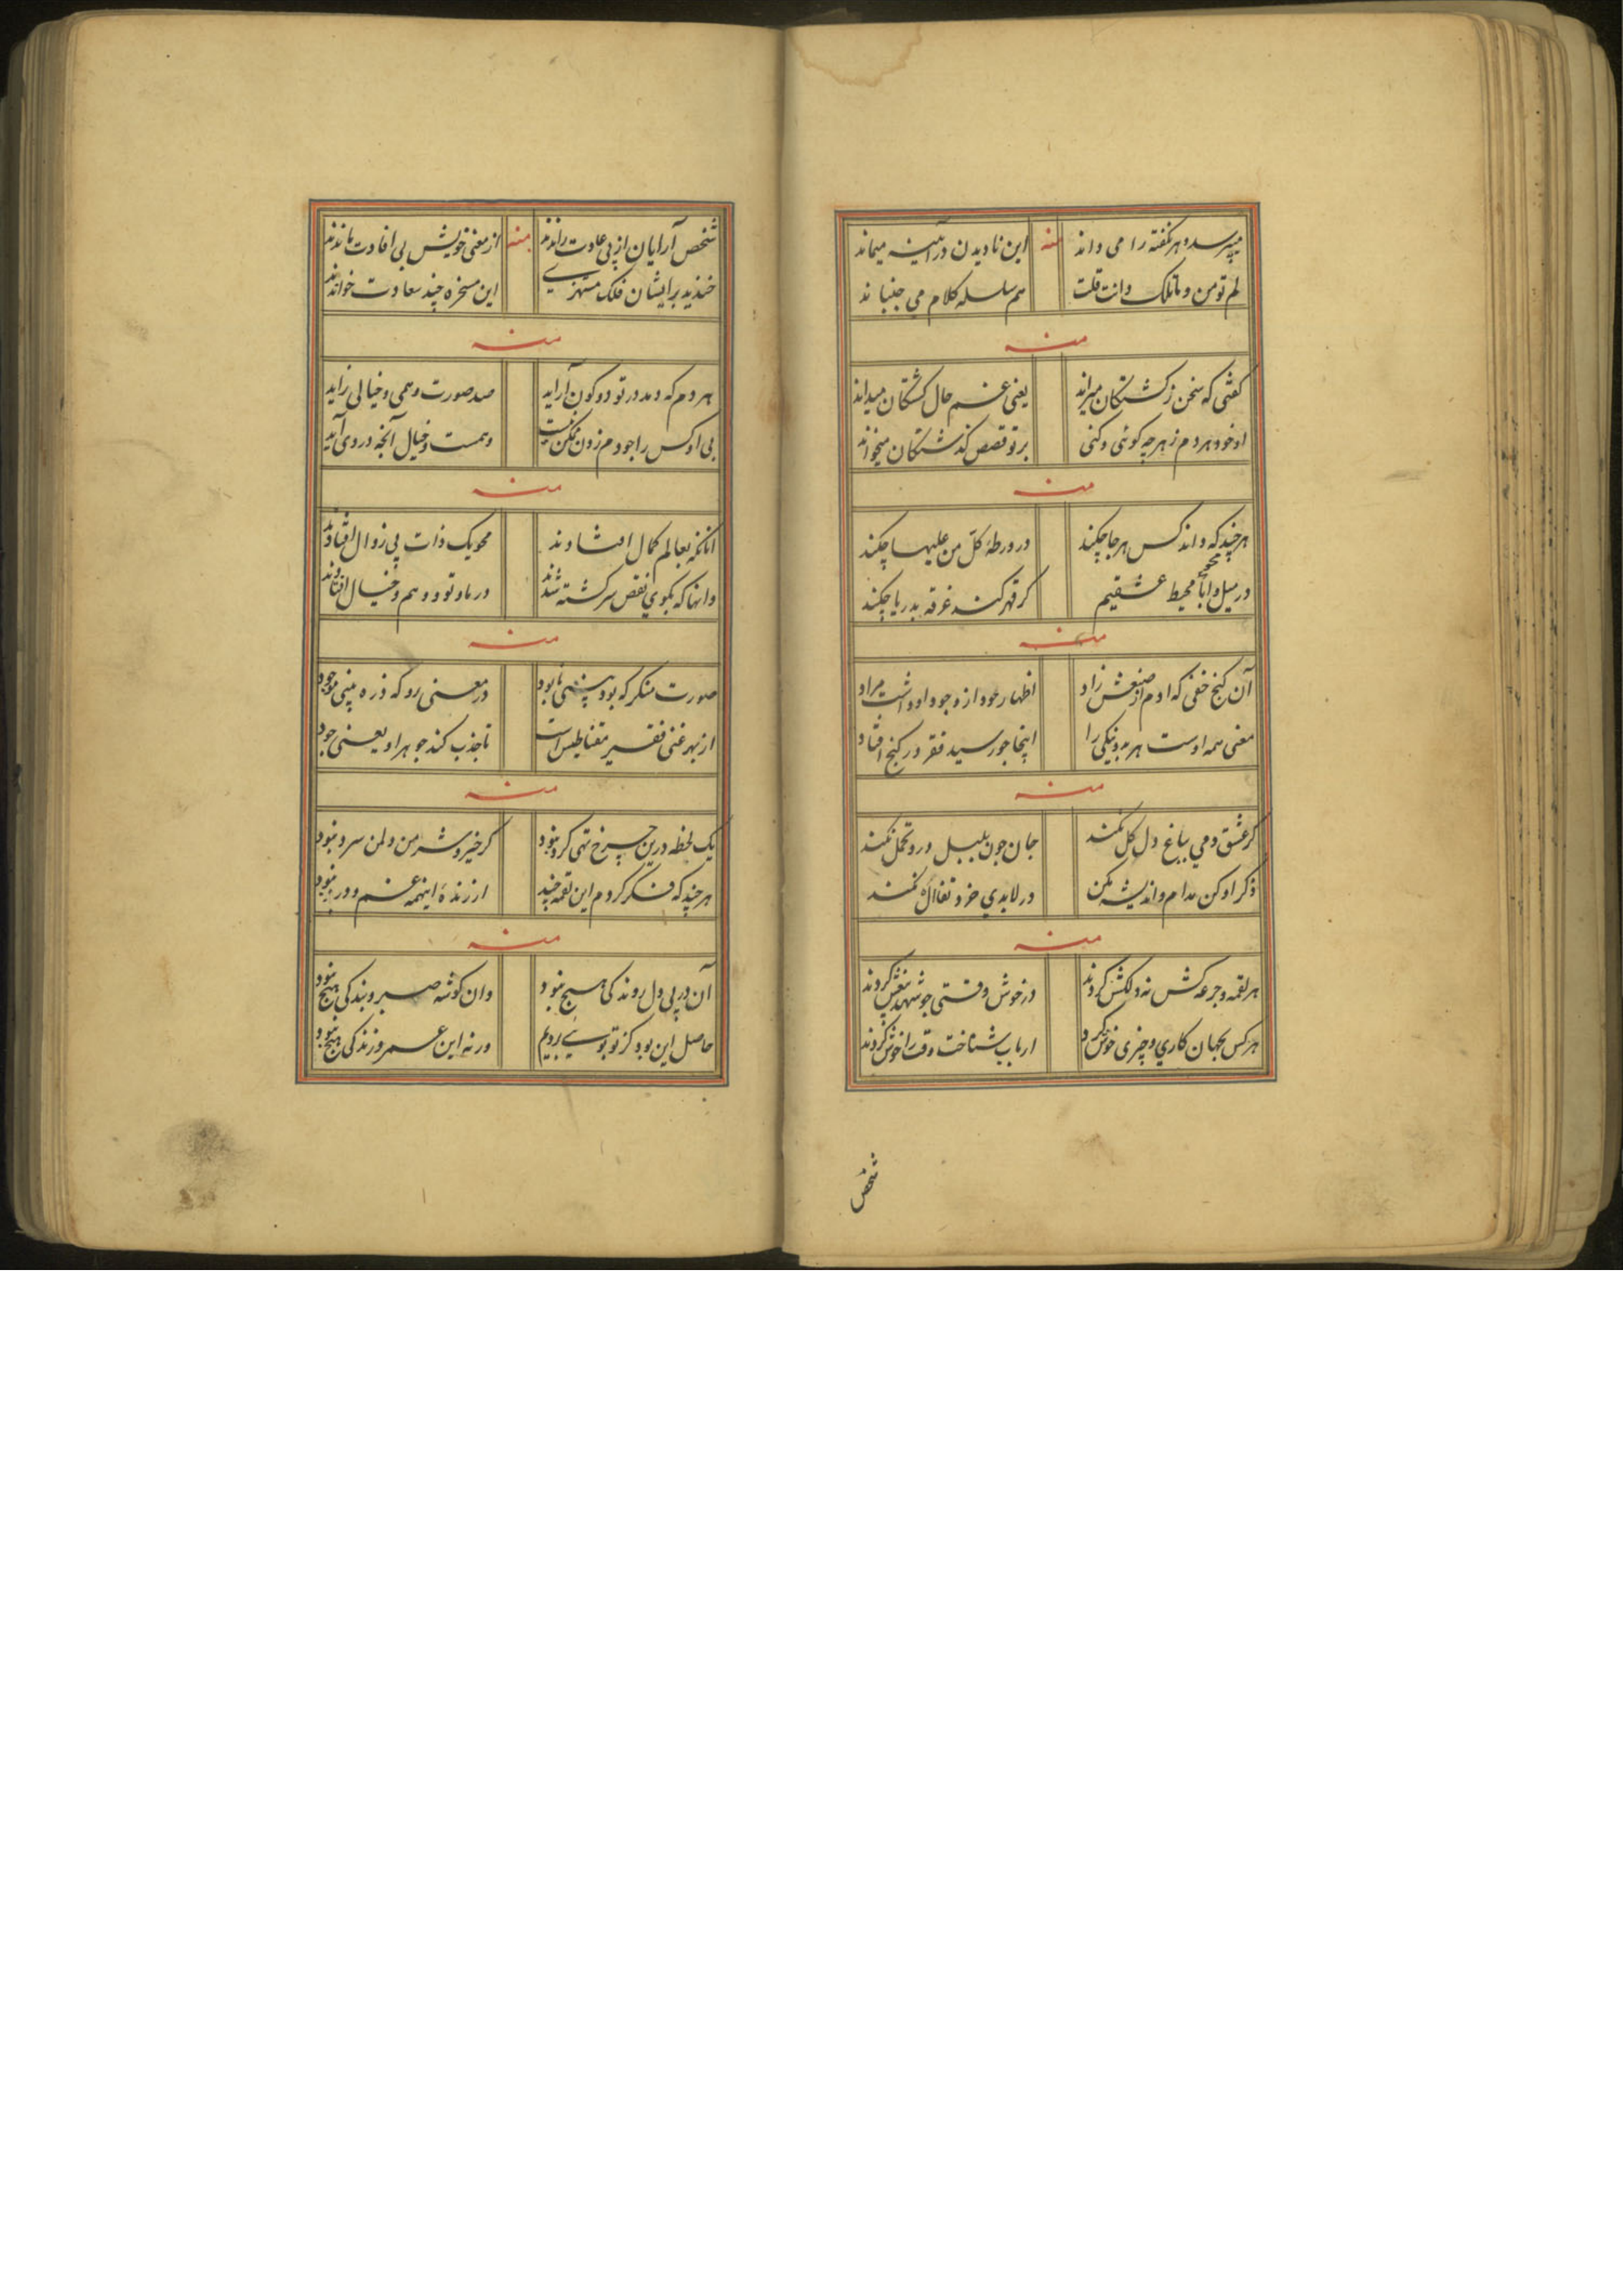 میپرسد و هر نکفته را می داند منه این نادیدن در آئینه میماند
لم تو من و ما تلک و انت قلت هم سلسله کلام می جنباند
منه
کفتی که سخن ز کشتکان میراند یعنی غم حال کشتکان میداند
او خود هر دم ز هر چه کوئی و کنی بر تو قصص کذشتکان میخواند
منه
هر چند که داند کس هر جا چکند در ورطهٔ کل من علیها چکند
در سیل محیط عشقیم کر قهر کند غرقه بدریا چکند
منه
آن کنج خفی که آدم از صنعش زاد اظهار خود از وجود او داشت مراد
معنی همه اوست هر بد و نیکی را اینجا چو رسید فقر در کنج افتاد
منه
کر عشق دمی بباغ دل کل نکند جان چون بلبل درو تحمل نکند
ذکر او کن مدام و اندیشه مکن در لابدی خود تغافل نکند
منه
هر لقمه و جرعه کش نه دلکش کردند در خوش وقتی چو شهد بیغش کردند
هر کس بجهان کاری و چیزی خوش کرد ارباب شناخت وقت را خوش کردند
شخص
شخص آرایان از پی عادت راندند منه از معنی خویش بی افادت ماندند
خندید بر ایشان فلک مستهزی این مسخره چند سعادت خواندند
منه
هر دم که دمد در تو دو کون آراید صد صورت وهمی و خیالی زاید
بی او کس را چو دم زدن ممکن نیست وهمست و خیال آنچه در وی آید
منه
آنانکه بعالم کمال افتادند محو یک ذات بی زوال افتادند
وانها که بکوی نقص سرکشته شدند در ما و تو و وهم و خیال افتادند
منه
صورت منکر که بود بینی نابود در معنی رو که ذره بینی موجود
از بهر غنی فقیر مقناطیس است تا جذب کند جوهر او یعنی جود
منه
یک لحظه درین چرخ تهی کرد نبود کر خیر و شر من و لمن سرد نبود
هر چند که فکر کردم این لقمه چند ارزندهٔ اینهمه غم و درد نبود
منه
آن در پی دل روندکی هیچ نبود وان کوشه صبر و بندکی هیچ نبود
حاصل این بود کز تو بوئی بردیم ورنه این عمر و زندکی هیچ نبود